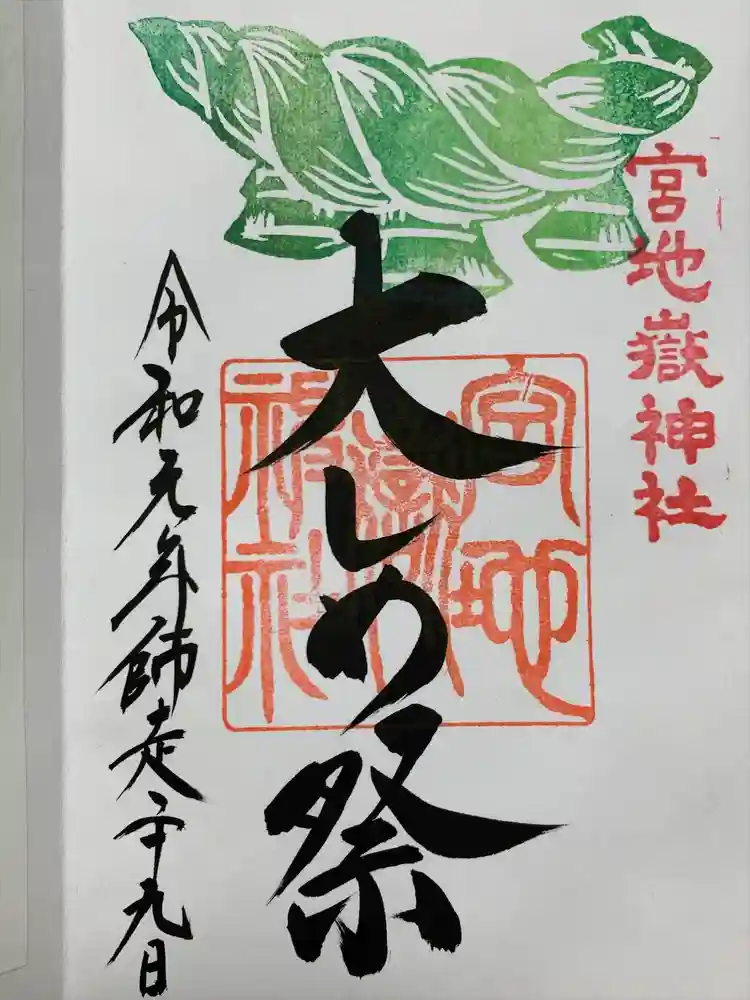 宮地嶽神社
大しめ祭
宮地嶽神社
令和元年師走二十九日